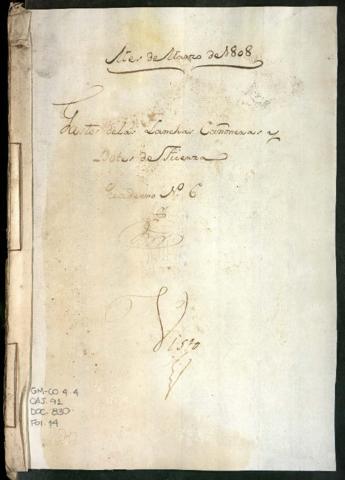 Mes de Marzo de 1808
Listas de las Lanchas Cañoneras y
Botes de Fuerza
Quaderno Nº 6
Visto
GM-CO 4.4
CAJ. 91
DOC. 830
FOJ. 14